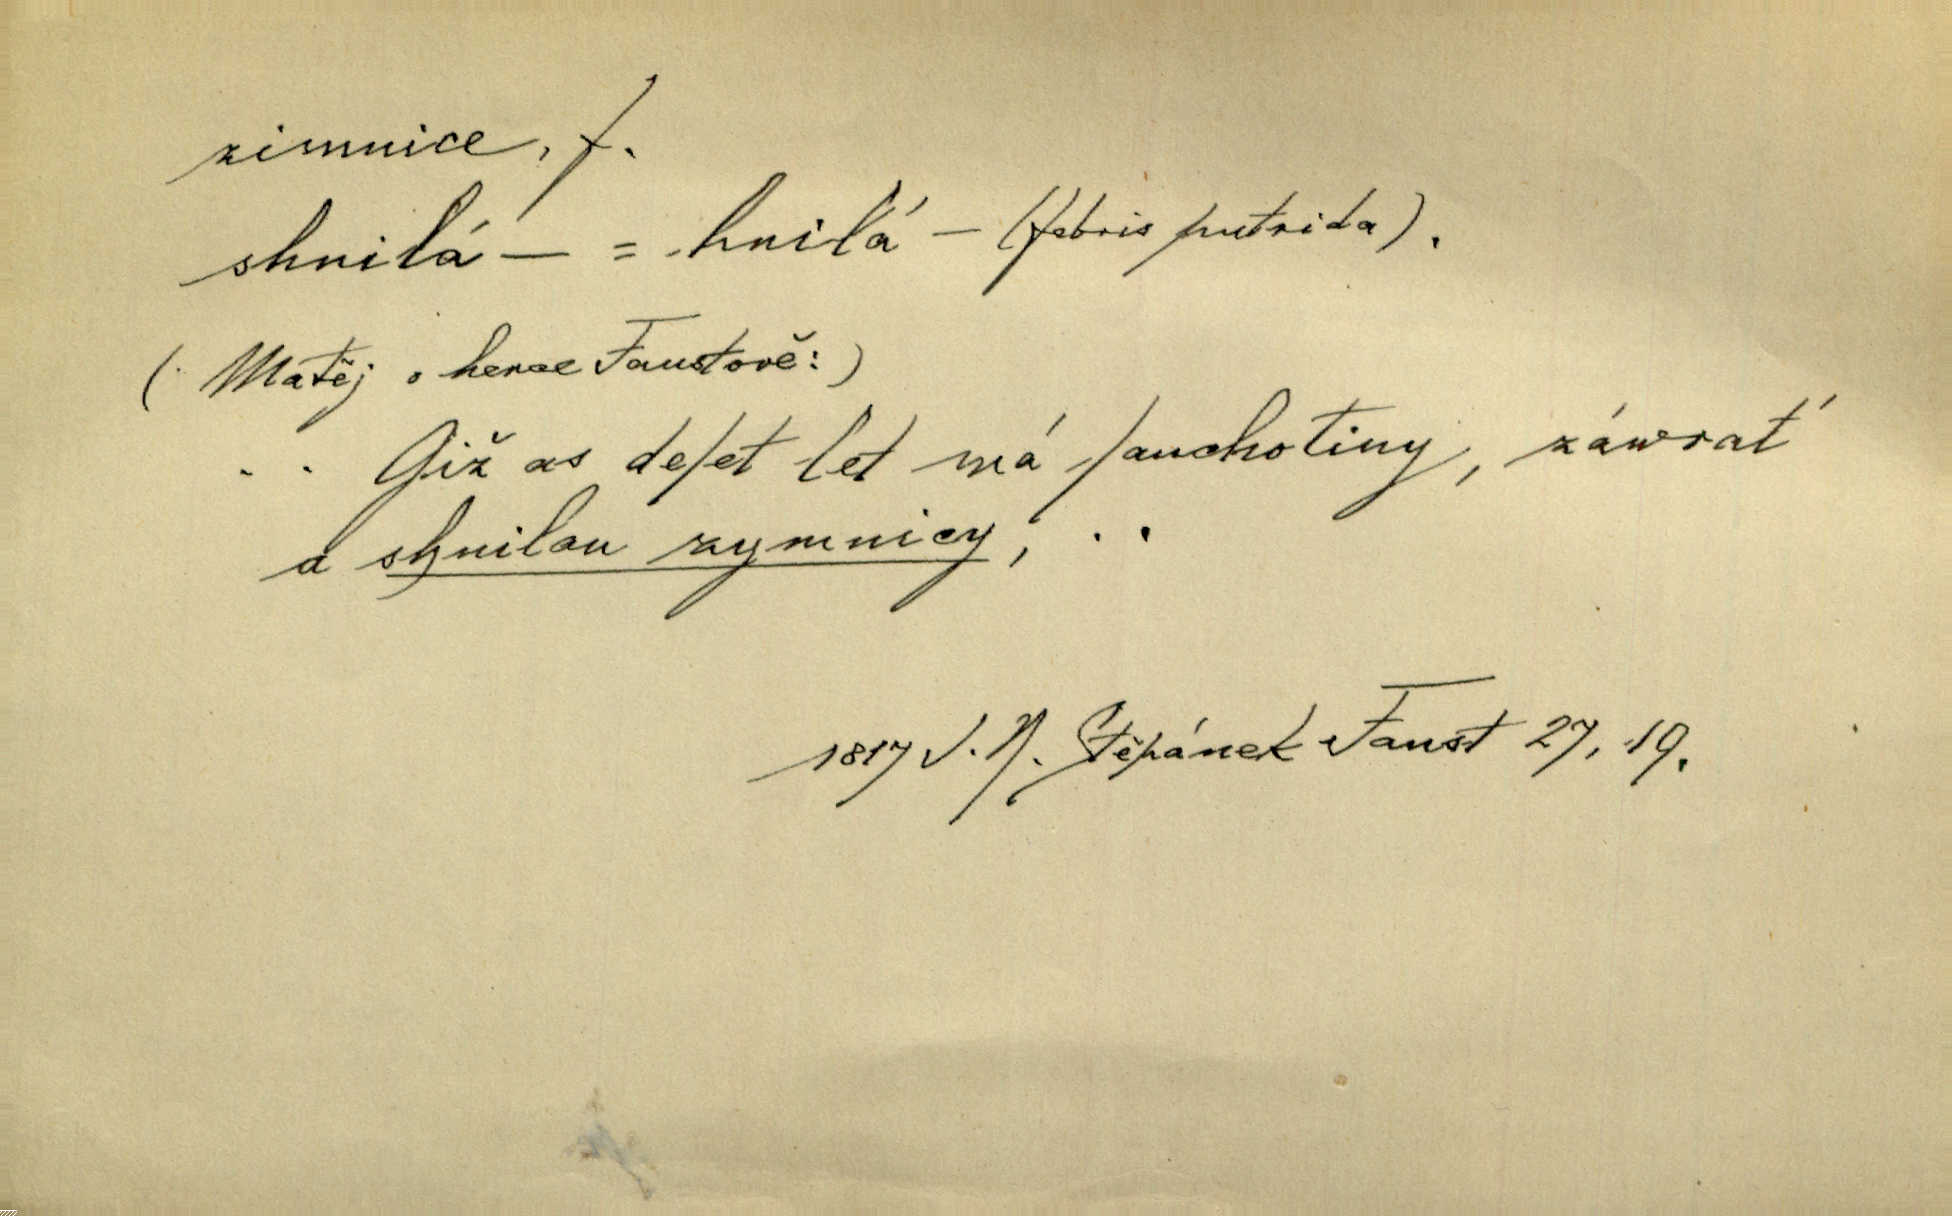 zimnice, f.
shnilá — = hnilá — (febris putrida).
(Matěj o herce Faustově:)
. . Giž as deſet let má ſauchotiny, záwrať
a shnilau zymnicy, . .
1817 J. N. Štěpánek Faust 27, 19.